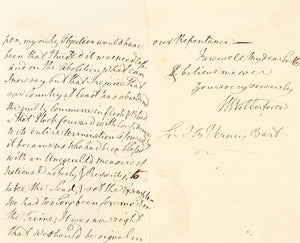 pen, my only Objection would have
been that I
And on the Abolition what can
I now say but that I rejoice that
our Country at least has abandoned
the guilty Commerce in flesh & Blood
& that I look forward with confidence
to its entire termination. I
it became us who had been blessed
with an Unequal'd measure of
national Liberty & Prosperity, to
take the Lead, & set the Example
We had too long been foremost in
the Crime; It was now right
that we should be signal in
our Repentance
Farewell My dear Sir
& believe me ever
Yours very sincerely
W Wilberforce
Bart